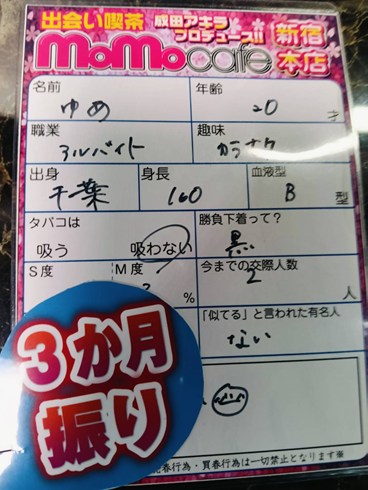 出会い喫茶 成田アキラ プロデュース!!
MoMocafe 新宿本店
名前 年齢
ゆめ 20 才
職業 趣味
アルバイト カラオケ
出身 身長 血液型
千葉 160 B 型
タバコは 勝負下着って?
吸う 吸わない 黒
S度 M度 今までの交際人数
% 2 人
「似てる」と言われた有名人
ない
3か月
振り
売春行為・買春行為は一切禁止となります※